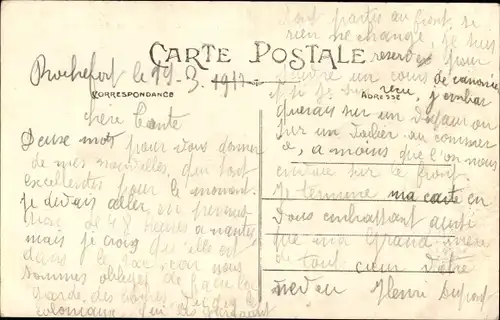 CARTE POSTALE
CORRESPONDANCE
ADRESSE
Rochefort le 29-3-1917
Chère Tante
Deux mots pour vous donner
de mes nouvelles, qui sont
excellentes pour le moment.
je devais aller en
de 48 heures a nantes
mais je crois qu'elle est
dans le lac, car nous
sommes obligés de faire la
garde des
coloniaux, qui
sont partis au front, si
rien ne change, je suis
reserve pour
suivre un cours de canonnier
et si je suis reçu, j'embar
querais sur un
sur un au commerce
a moins que l'on nous
envoie sur le front.
Je termine ma carte en
vous embrassant ainsi
que ma Grand-mère
de tout cœur votre
neveu Henri Dupont